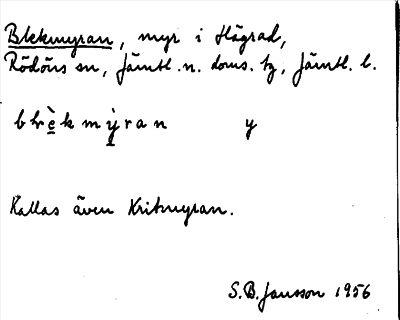 Blekmyran, myr i Högrad,
Rödöns sn, Jämtl. n. doms. tg, Jämtl. l.
blèkmỳran y
Kallas även Kritmyran.
S.B. Jansson 1956